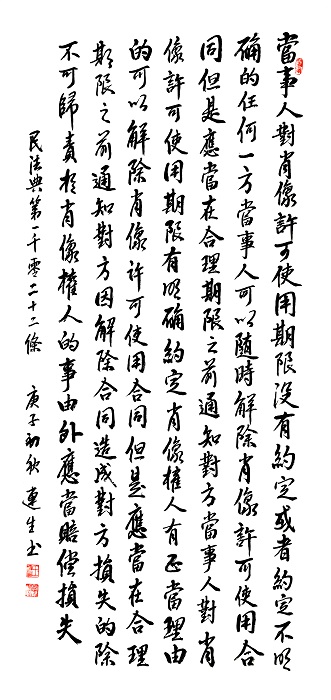 當事人對肖像許可使用期限沒有約定或者約定不明
確的任何一方當事人可以隨時解除肖像許可使用合
同但是應當在合理期限之前通知對方當事人對肖
像許可使用期限有明確約定肖像權人有正當理由
的可以解除肖像許可使用合同但是應當在合理
期限之前通知對方因解除合同造成對方損失的除
不可歸責於肖像權人的事由外應當賠償損失
民法典第一千零二十二條 庚子初秋 連生书